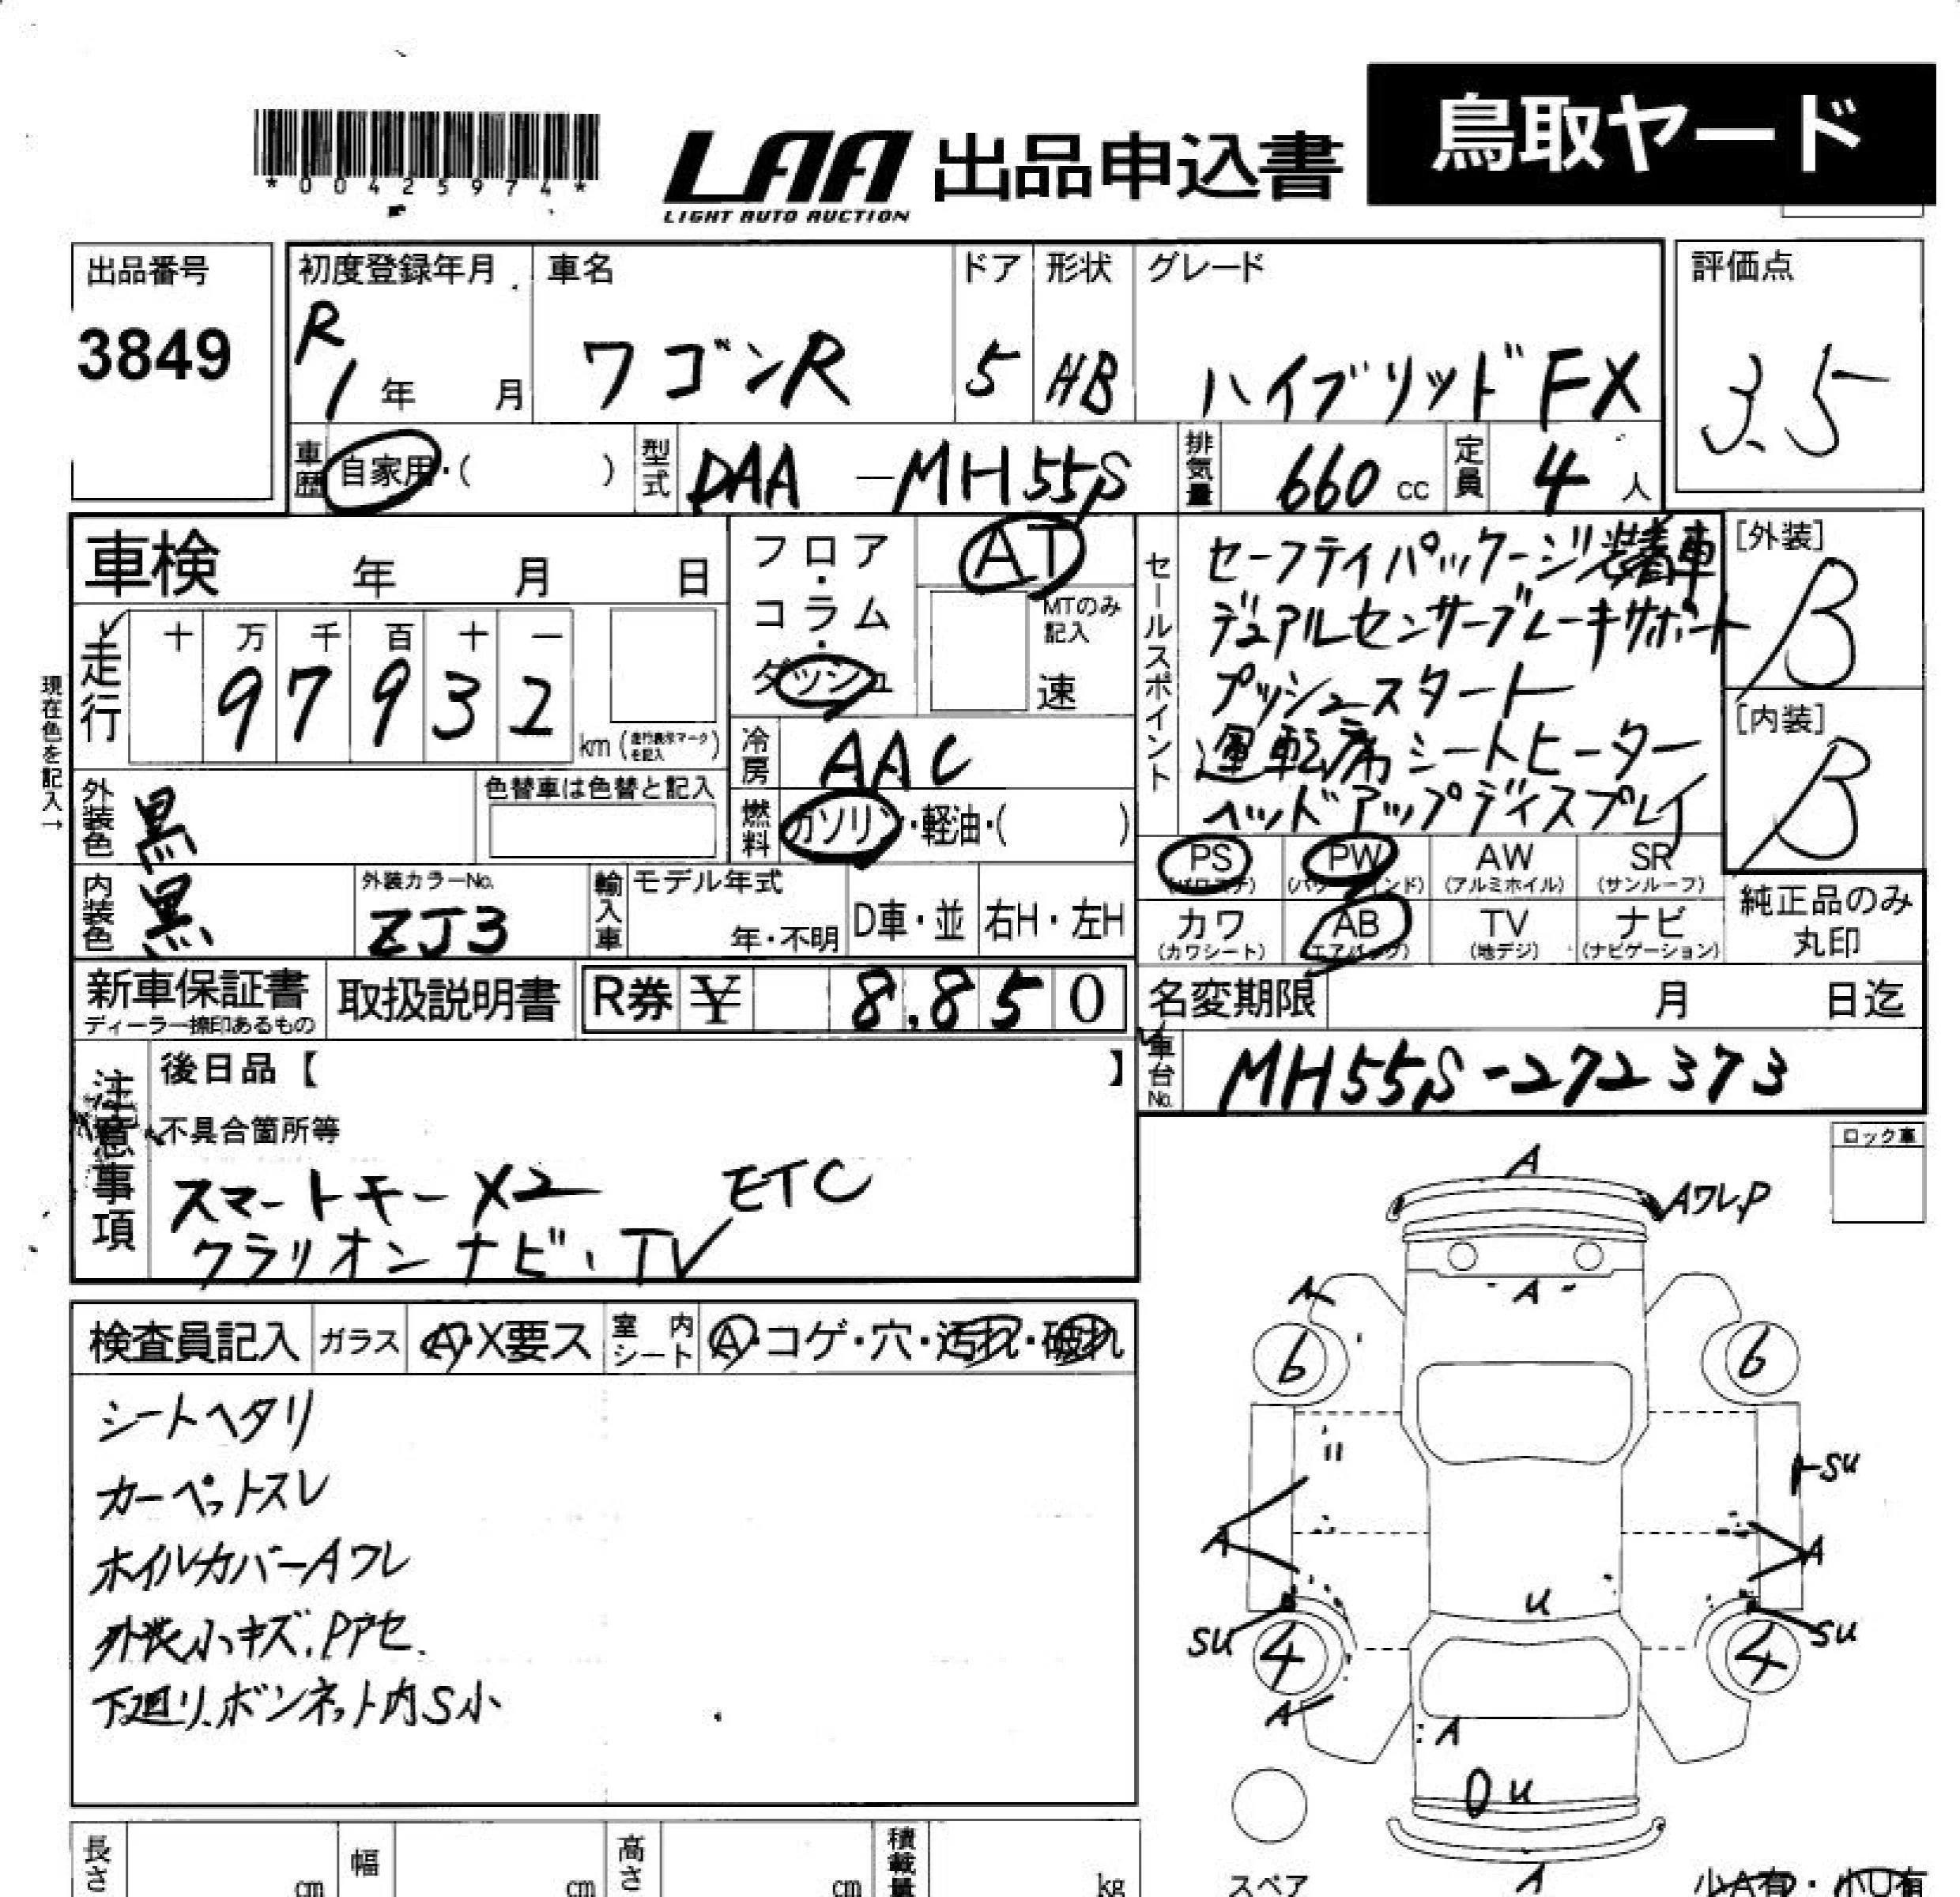 鳥取ヤード
LAA 出品申込書
LIGHT AUTO AUCTION
*00425974*
出品番号
3849
初度登録年月
R
1年 月
車名
ワゴンR
ドア
5
形状
HB
グレード
ハイブリッドFX
評価点
3.5
車歴
自家用・( )
型式
DAA-MH55S
排気量
660 cc
定員
4 人
車検 年 月 日
フロア・コラム・ダッシュ
AT
MTのみ記入
速
セールスポイント
セーフティパッケージ装着車
デュアルセンサーブレーキサポート
プッシュスタート
運転席シートヒーター
ヘッドアップディスプレイ
[外装]
B
[内装]
B
現在色を記入→
走行
十 万 千 百 十 一
9 7 9 3 2
km (走行表示マークを記入)
冷房
AAC
燃料
ガソリン・軽油・( )
外装色
黒
色替車は色替と記入
内装色
黒
外装カラーNo.
ZJ3
輸入車
モデル年式
年・不明
D車・並
右H・左H
PS (パワステ)
PW (パワーウィンド)
AW (アルミホイル)
SR (サンルーフ)
カワ (カワシート)
AB (エアバック)
TV (地デジ)
ナビ (ナビゲーション)
純正品のみ丸印
新車保証書
ディーラー捺印あるもの
取扱説明書
R券 ¥ 8,850
名変期限 月 日迄
車台No.
MH55S-272373
注意事項
後日品【 】
不具合箇所等
スマートキーX2 ETC
クラリオン ナビ、TV
ロック車
検査員記入
ガラス
A・X要ス
室内シート
A・コゲ・穴・汚れ・破れ
シートヘタリ
カーペットスレ
ホイルカバーAワレ
外装小キズ、Pアセ
下廻り、ボンネット内S小
A
AワレP
A
A
6
6
SU
A
A
U
SU
4
4
SU
A
A
U
A
スペア
小A有・小U有
長さ cm
幅 cm
高さ cm
積載量 kg